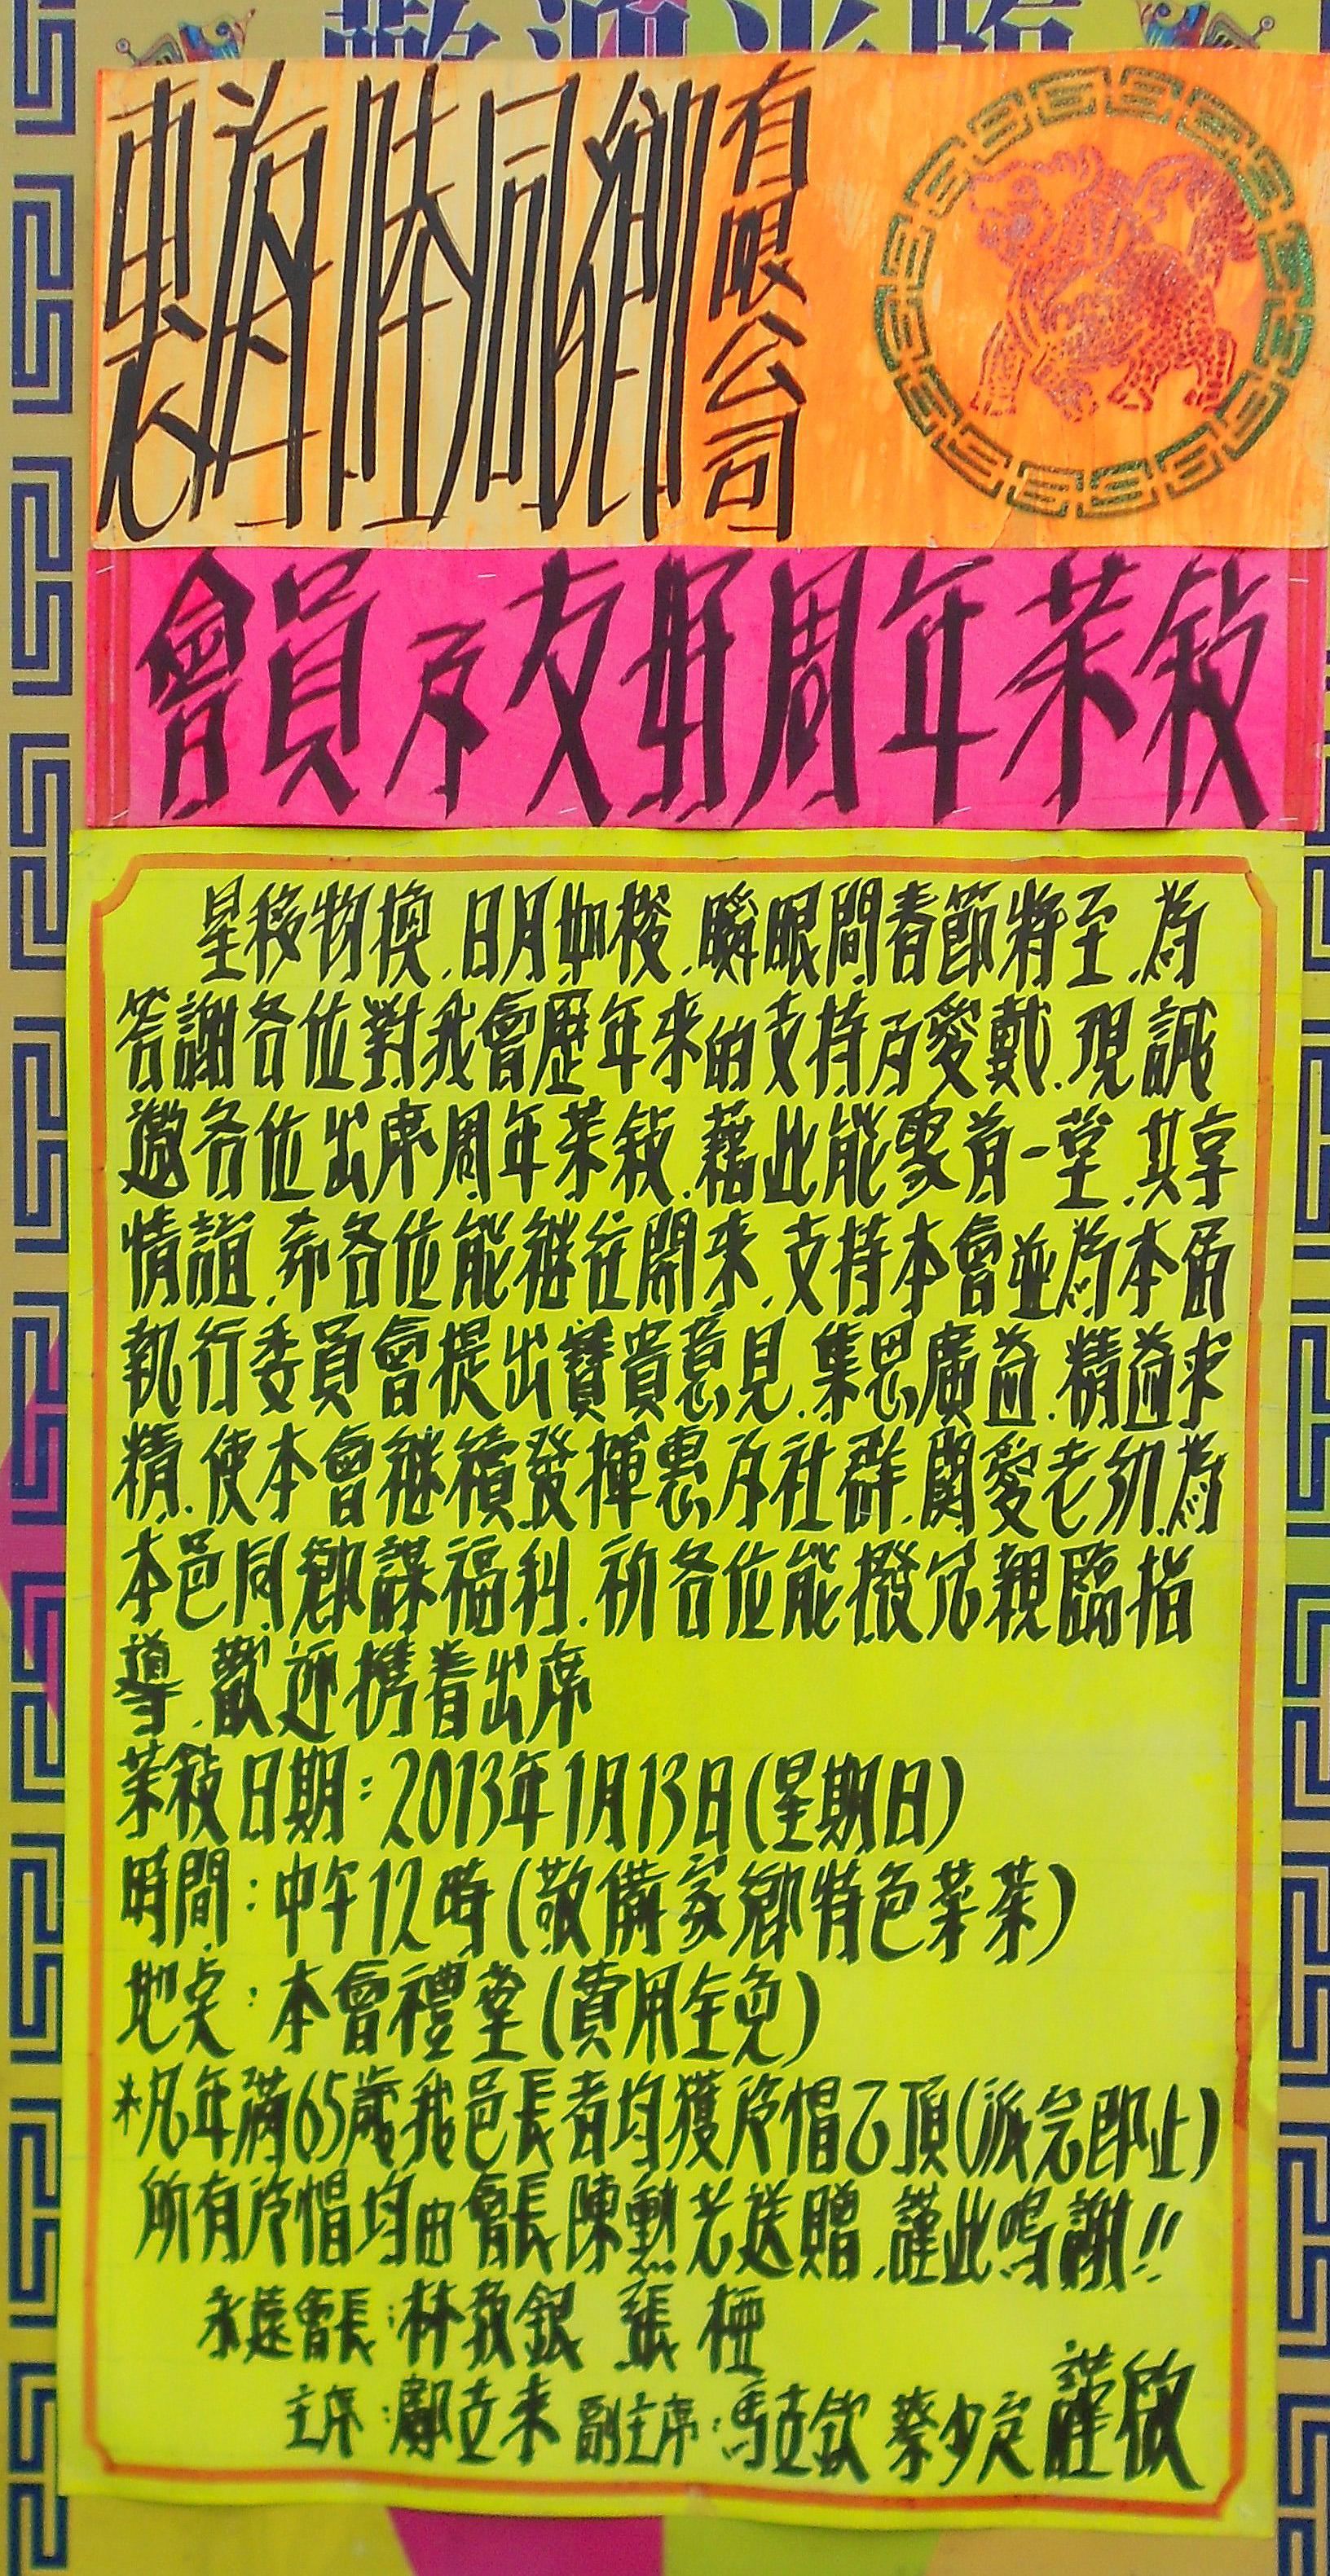 歡迎光臨
惠海陸同鄉有限公司
會員及友好周年茶敍
星移物換.日月如梭.瞬眼間春節將至.為
答謝各位對我會歷年來的支持及愛戴.現誠
邀各位出席周年茶敍.藉此能聚首一堂.共享
情誼.希各位能继往開來.支持本會並為本屆
執行委員會提出寶貴意見.集思廣益.精益求
精.使本會继續發揮惠及社群.関愛老幼.為
本邑同鄉謀福利.祈各位能撥冗親臨指
導.歡迎携眷出席
茶敍日期:2013年1月13日(星期日)
時間:中午12時(敬備家鄉特色菜茶)
地点:本會禮堂(費用全免)
*凡年滿65歲我邑長者均獲冷帽乙頂(派完即止)
所有冷帽均由會長陳勲老送贈.謹此鳴謝!!
永遠會長:林教銀 張栅
主席:鄺立来 副主席:馬立欽 蔡少定 謹啟